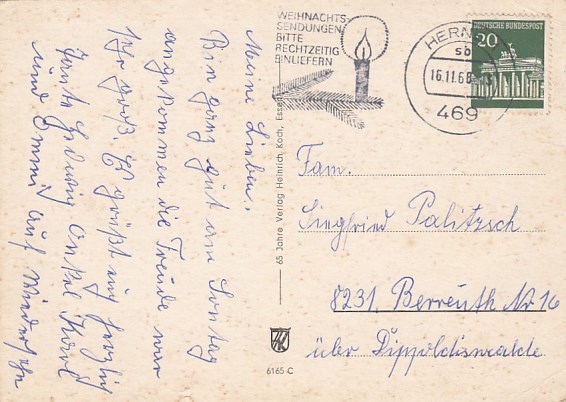 Meine Lieben.
Bin ganz gut am Sontag
angekommen die Freude war
sehr groß. Es grüßt euch herzlich
Tante Hedwig Onkel Karl
und Emmi auf Wiedersehn
65 Jahre Verlag Heinrich Koch, Essen
WEIHNACHTS-
SENDUNGEN
BITTE
RECHTZEITIG
EINLIEFERN
HERNE
sb
16.11.68
469
DEUTSCHE BUNDESPOST
20
Fam.
Siegfried Palitzsch
8231. Berreuth Nr 16
über Dippoldiswalde
6165 C